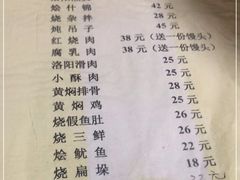 烩什锦 42元
烧杂拌 28元
炖吊子 45元
红烧肉 38元(送一份馒头)
腐乳肉 38元(送一份馒头)
洛阳滑肉 25元
小酥肉 25元
黄焖排骨 28元
黄焖鸡 25元
烧假鱼肚 26元
烧三鲜 26元
烩鱿鱼 22元
烧扁垛 18元
22元